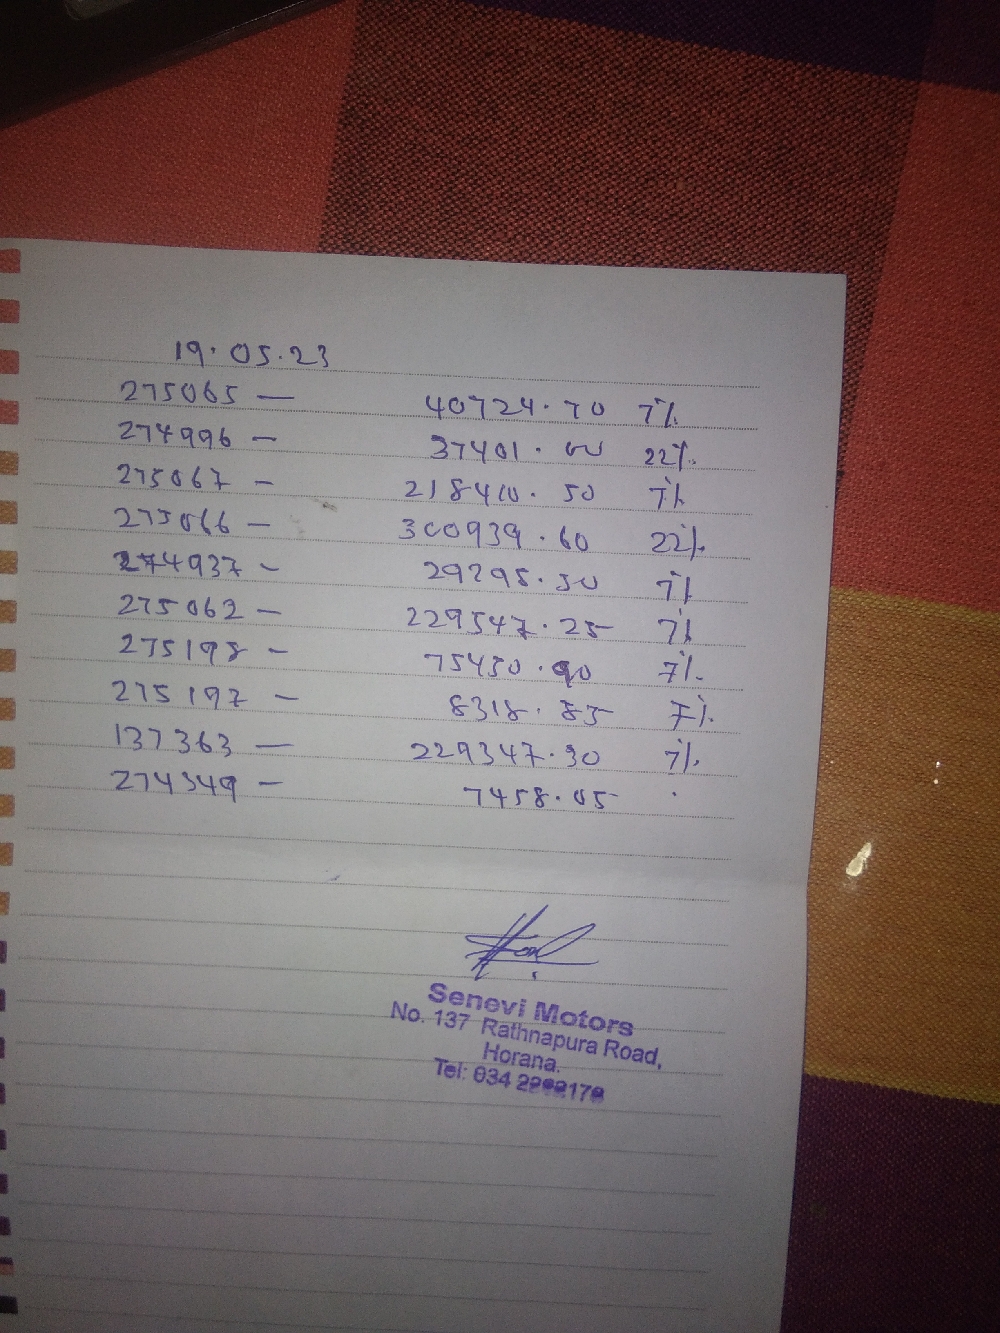 19.05.23
275065 — 40724.70 7%
274996 — 37401.00 22%
275067 — 218410.50 7%
275066 — 300939.60 22%
274937 — 29295.50 7%
275062 — 229547.25 7%
275198 — 75450.90 7%
275197 — 8318.85 7%
137363 — 229347.90 7%
274349 — 7458.05
Senevi Motors
No. 137 Rathnapura Road,
Horana.
Tel: 034